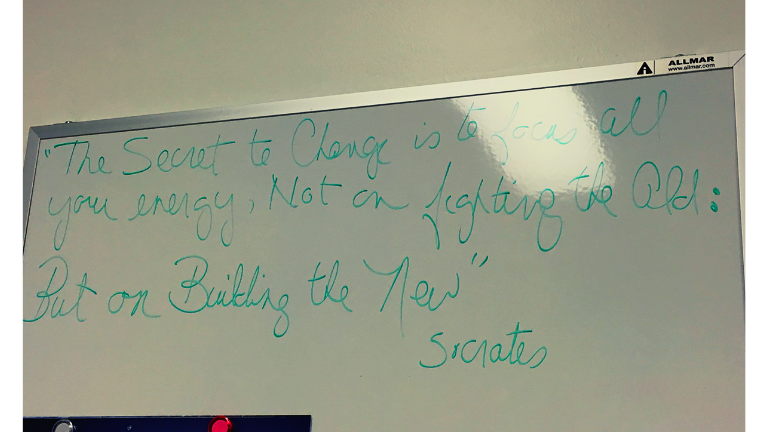 ALLMAR
www.allmar.com
"The Secret to Change is to focus all
your energy, Not on fighting the Old:
But on Building the New"
Socrates